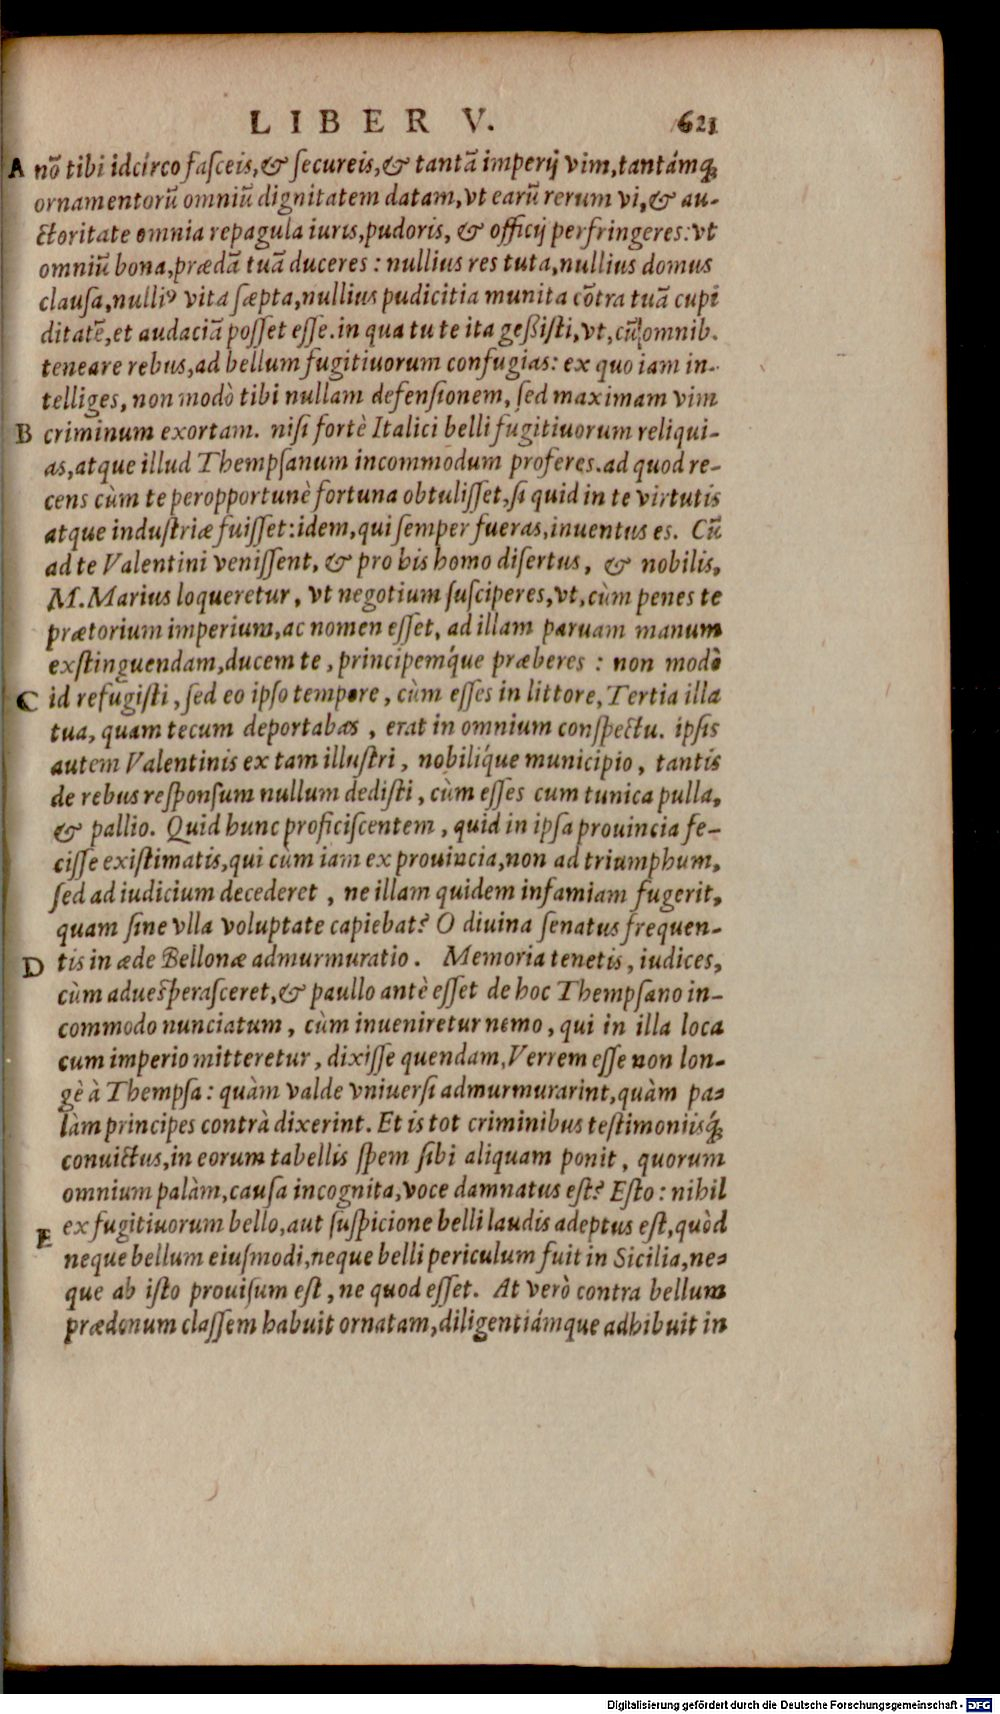 LIBER V. 621
A nõ tibi idcirco fasceis, & secureis, & tantã imperij vim, tantámq;
ornamentorũ omniũ dignitatem datam, vt earũ rerum vi, & au-
ctoritate omnia repagula iuris, pudoris, & officij perfringeres: vt
omniũ bona, prædã tuã duceres: nullius res tuta, nullius domus
clausa, nulliꝰ vita sæpta, nullius pudicitia munita cõtra tuã cupi
ditatẽ, et audaciã posset esse. in qua tu te ita geßisti, vt, cũ omnib.
teneare rebus, ad bellum fugitiuorum confugias: ex quo iam in-
telliges, non modò tibi nullam defensionem, sed maximam vim
B criminum exortam. nisi fortè Italici belli fugitiuorum reliqui-
as, atque illud Thempsanum incommodum proferes. ad quod re-
cens cùm te peropportunè fortuna obtulisset, si quid in te virtutis
atque industriæ fuisset: idem, qui semper fueras, inuentus es. Cũ
ad te Valentini venissent, & pro his homo disertus, & nobilis,
M. Marius loqueretur, vt negotium susciperes, vt, cùm penes te
prætorium imperium, ac nomen esset, ad illam paruam manum
exstinguendam, ducem te, principemq́ue præberes: non modò
C id refugisti, sed eo ipso tempore, cùm esses in littore, Tertia illa
tua, quam tecum deportabas, erat in omnium conspectu. ipsis
autem Valentinis ex tam illustri, nobiliq́ue municipio, tantis
de rebus responsum nullum dedisti, cùm esses cum tunica pulla,
& pallio. Quid hunc proficiscentem, quid in ipsa prouincia fe-
cisse existimatis, qui cùm iam ex prouincia, non ad triumphum,
sed ad iudicium decederet, ne illam quidem infamiam fugerit,
quam sine vlla voluptate capiebat? O diuina senatus frequen-
D tis in æde Bellonæ admurmuratio. Memoria tenetis, iudices,
cùm aduesperasceret, & paullo antè esset de hoc Thempsano in-
commodo nunciatum, cùm inueniretur nemo, qui in illa loca
cum imperio mitteretur, dixisse quendam, Verrem esse non lon-
gè à Thempsa: quàm valde vniuersi admurmurarint, quàm pa-
làm principes contrà dixerint. Et is tot criminibus testimoniisq́;
conuictus, in eorum tabellis spem sibi aliquam ponit, quorum
omnium palàm, causa incognita, voce damnatus est? Esto: nihil
E ex fugitiuorum bello, aut suspicione belli laudis adeptus est, quòd
neque bellum eiusmodi, neque belli periculum fuit in Sicilia, ne-
que ab isto prouisum est, ne quod esset. At verò contra bellum
prædonum classem habuit ornatam, diligentiámque adhibuit in
Digitalisierung gefördert durch die Deutsche Forschungsgemeinschaft - DFG